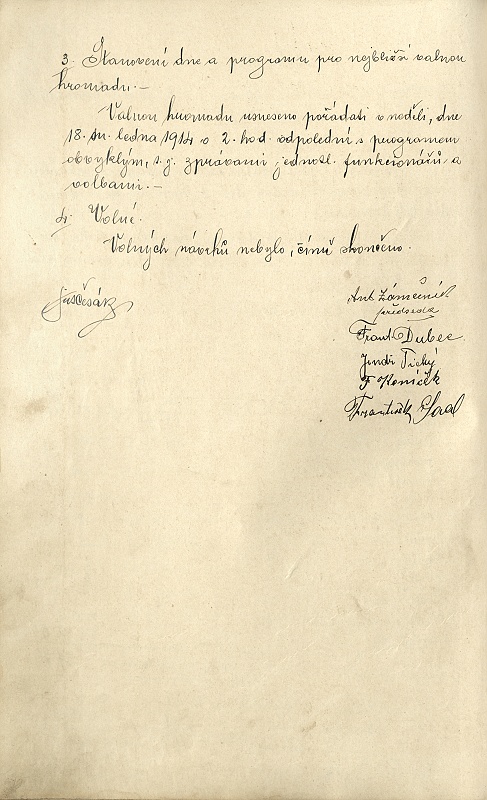 3. Stanovení dne a programu pro nejbližší valnou
hromadu.—
Valnou hromadu usneseno pořádati v neděli, dne
18. tm. ledna 1914 o 2. hod. odpolední s programem
obvyklým, t. j. zprávami jednotl. funkcionářů a
volbami.—
4. Volné.
Volných návrhů nebylo, čímž skončeno.
Ant Zámečník
předseda
Frant. Dubec
Jindř Tichý
F Koníček
František